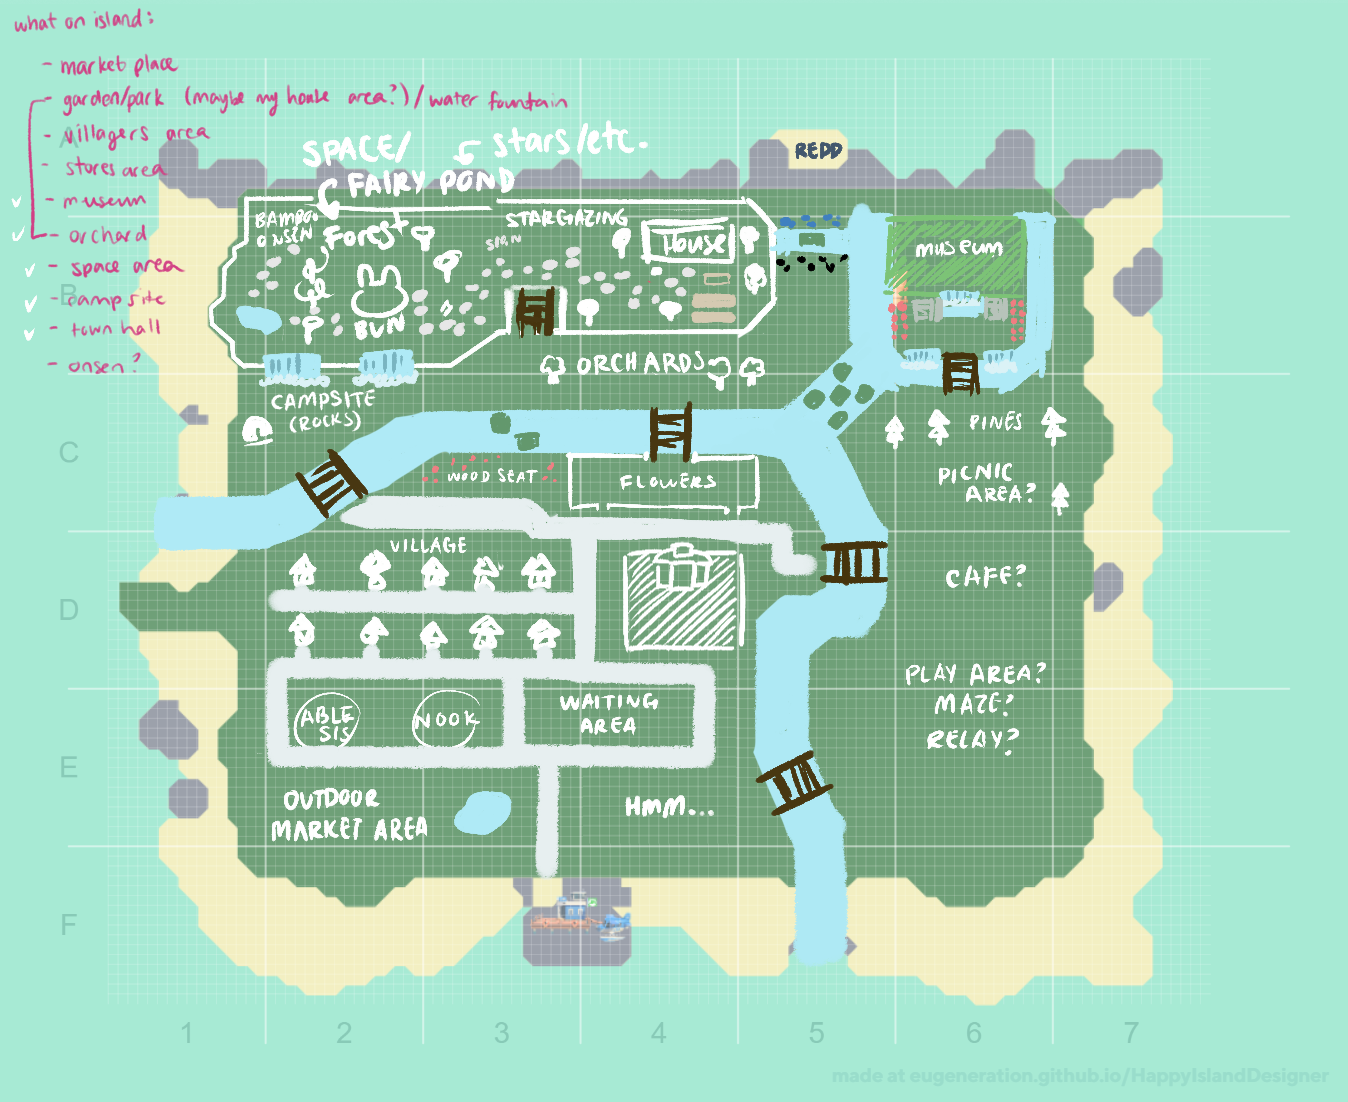 what on island:
- market place
- garden/park (maybe my house area?)/water fountain
- villagers area
- stores area
- museum
- orchard
- space area
- campsite
- town hall
- onsen?
SPACE/
stars/etc.
FAIRY POND
REDD
BAMBOO
ONSEN
Forest
STARGAZING
SIGN
HOUSE
MUSEUM
BUN
ORCHARDS
CAMPSITE
(ROCKS)
WOOD SEAT
FLOWERS
PINES
PICNIC
AREA?
VILLAGE
CAFE?
PLAY AREA?
MAZE?
RELAY?
ABLE
SIS
NOOK
WAITING
AREA
OUTDOOR
MARKET AREA
HMM...
A
B
C
D
E
F
1 2 3 4 5 6 7
made at eugeneration.github.io/HappyIslandDesigner